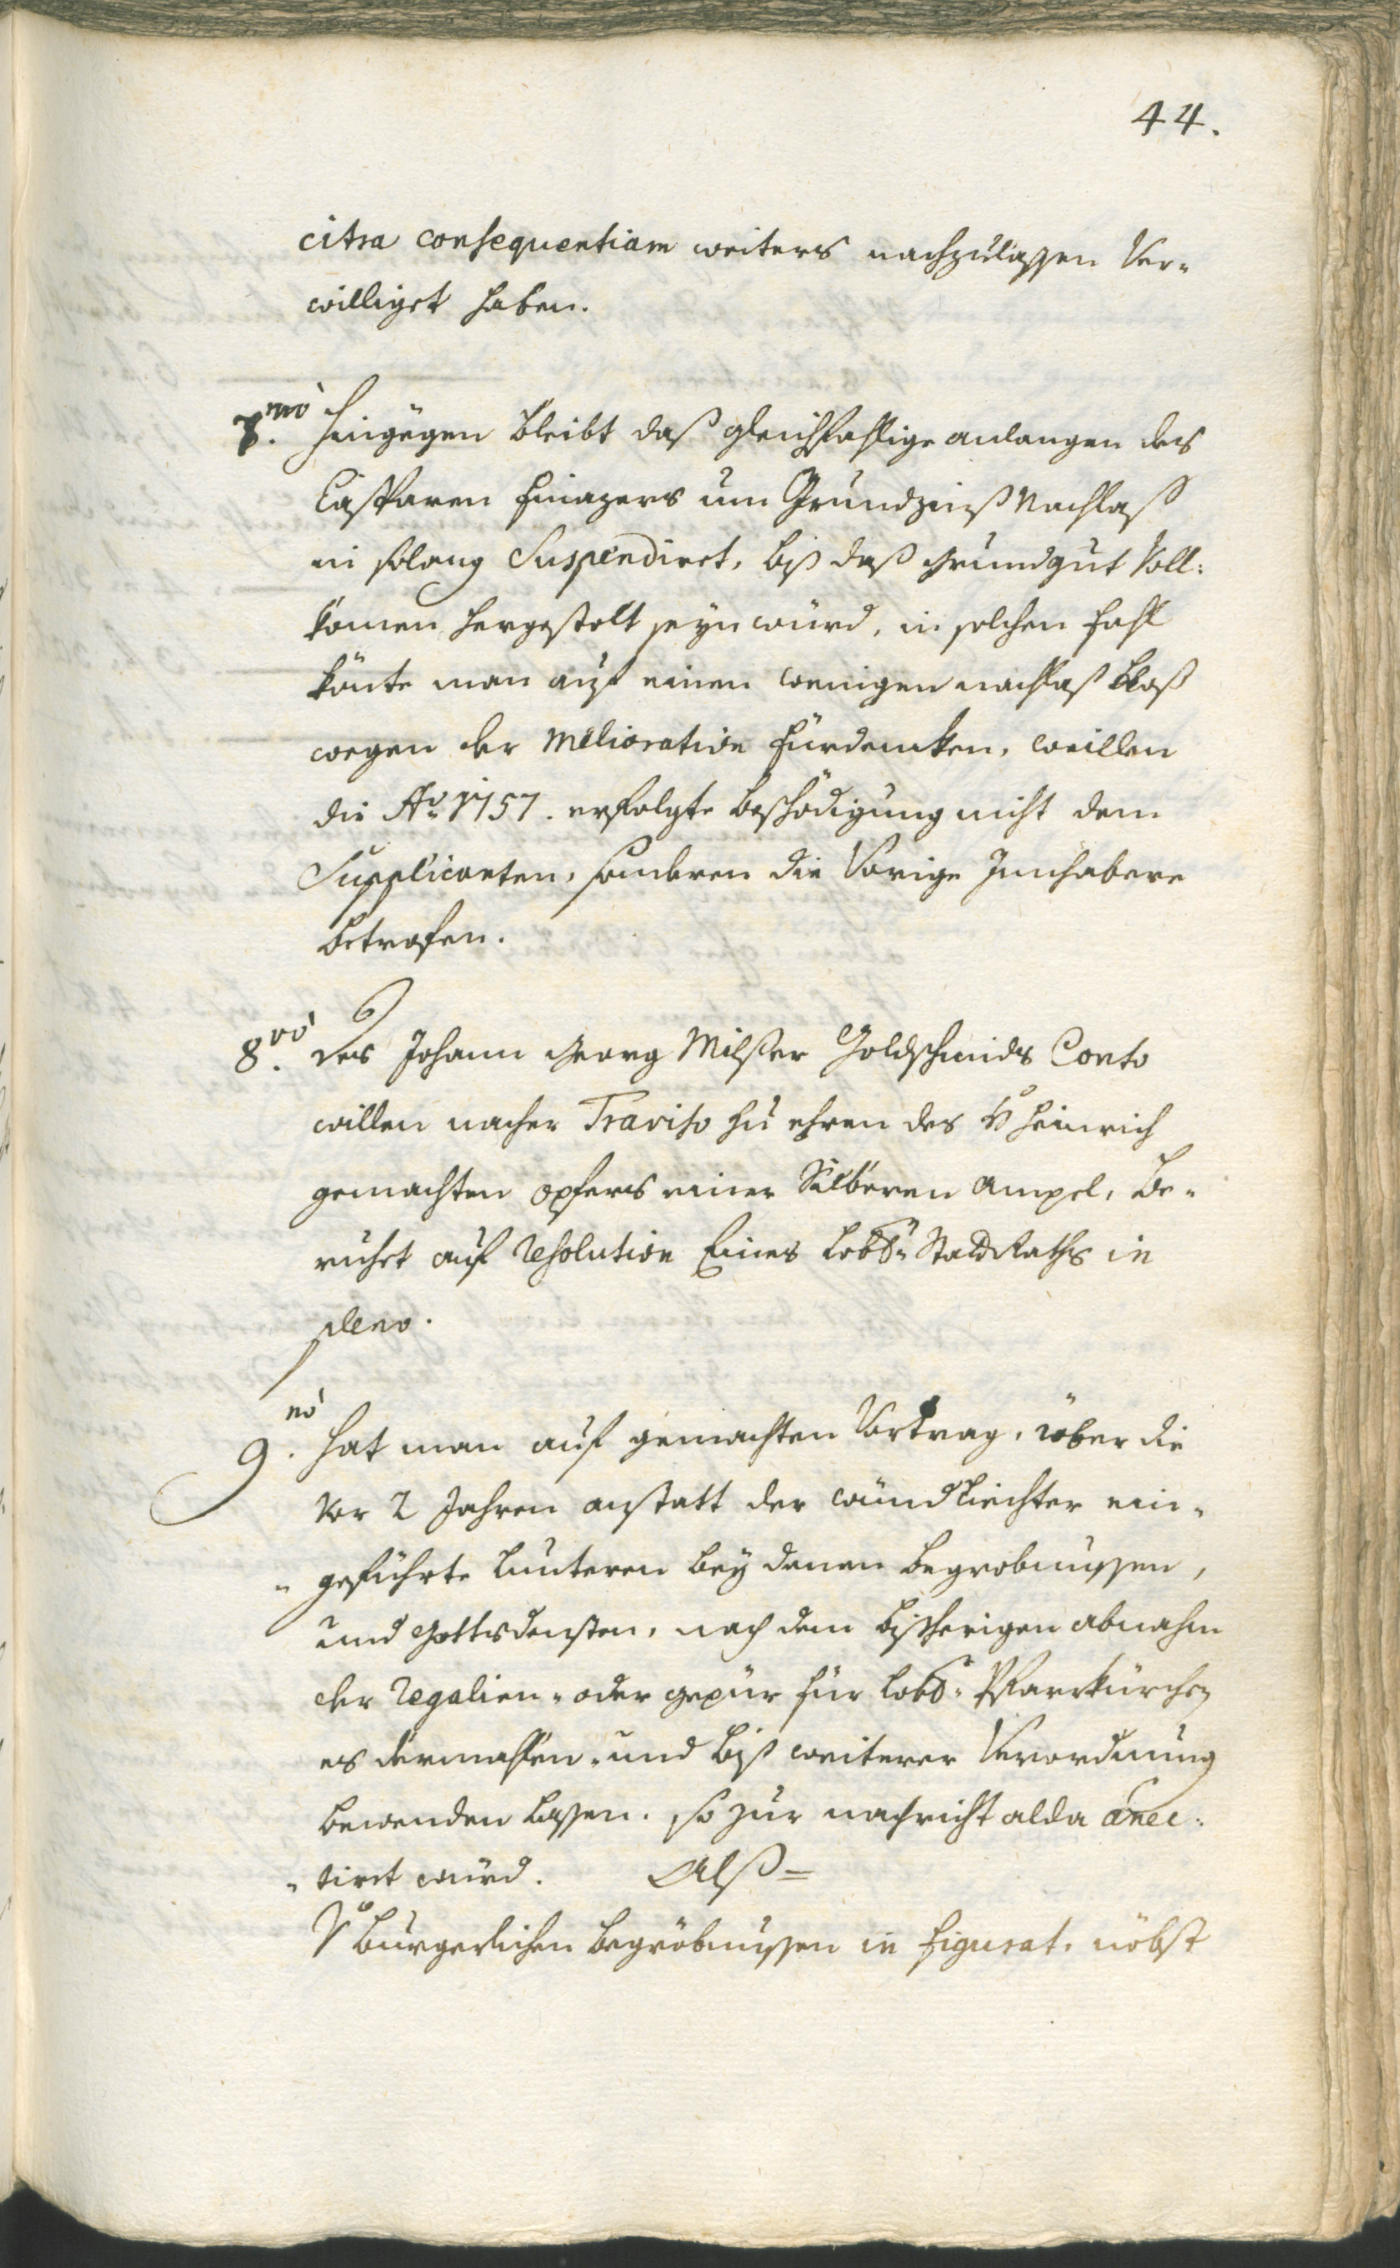 44.
citra consequentiam weiters nachzulassen Ver-
williget haben.
7.mo Hingögen bleibt daß gleichfahlige anlangen des
Casparen Hinazers um Grundzinß Nachlaß
in solang Suspendiret, biß daß grundgut Voll-
komen hergestelt seyn würd, in solchen fahl
könte man auf einen wenigen nachlaß bloß
wegen der Melioration fürdencken, weillen
die Ao 1757. erfolgte beschödigung nicht dem
Supplicanten, sonderen die Vorige Innhabere
betrofen.
8.vo Des Johann Georg Milser Goldschmids Conto
willen nacher Traviso zu ehren des H Heinrich
gemachten opfers einer Silberen Ampel, Be-
ruhet auf resolution Eines Lobl: Stadt Raths in
pleno.
9.no Hat man auf gemachten Vortrag, über die
vor 2 Jahren anstatt der windliechter ein-
geführte Lanteren bey denen begrobnussen,
und Gottsdensten, nach dem bißherigen abnahm
der Regalien- oder gepür für Lobl: Pfarrkürchen
es dermahlen- und biß weiterer Verordnung
bewenden lassen. So zur nachricht alda anec-
tiret würd. Alß=
Vo Burgerlichen begröbnussen in figurat. nöbst